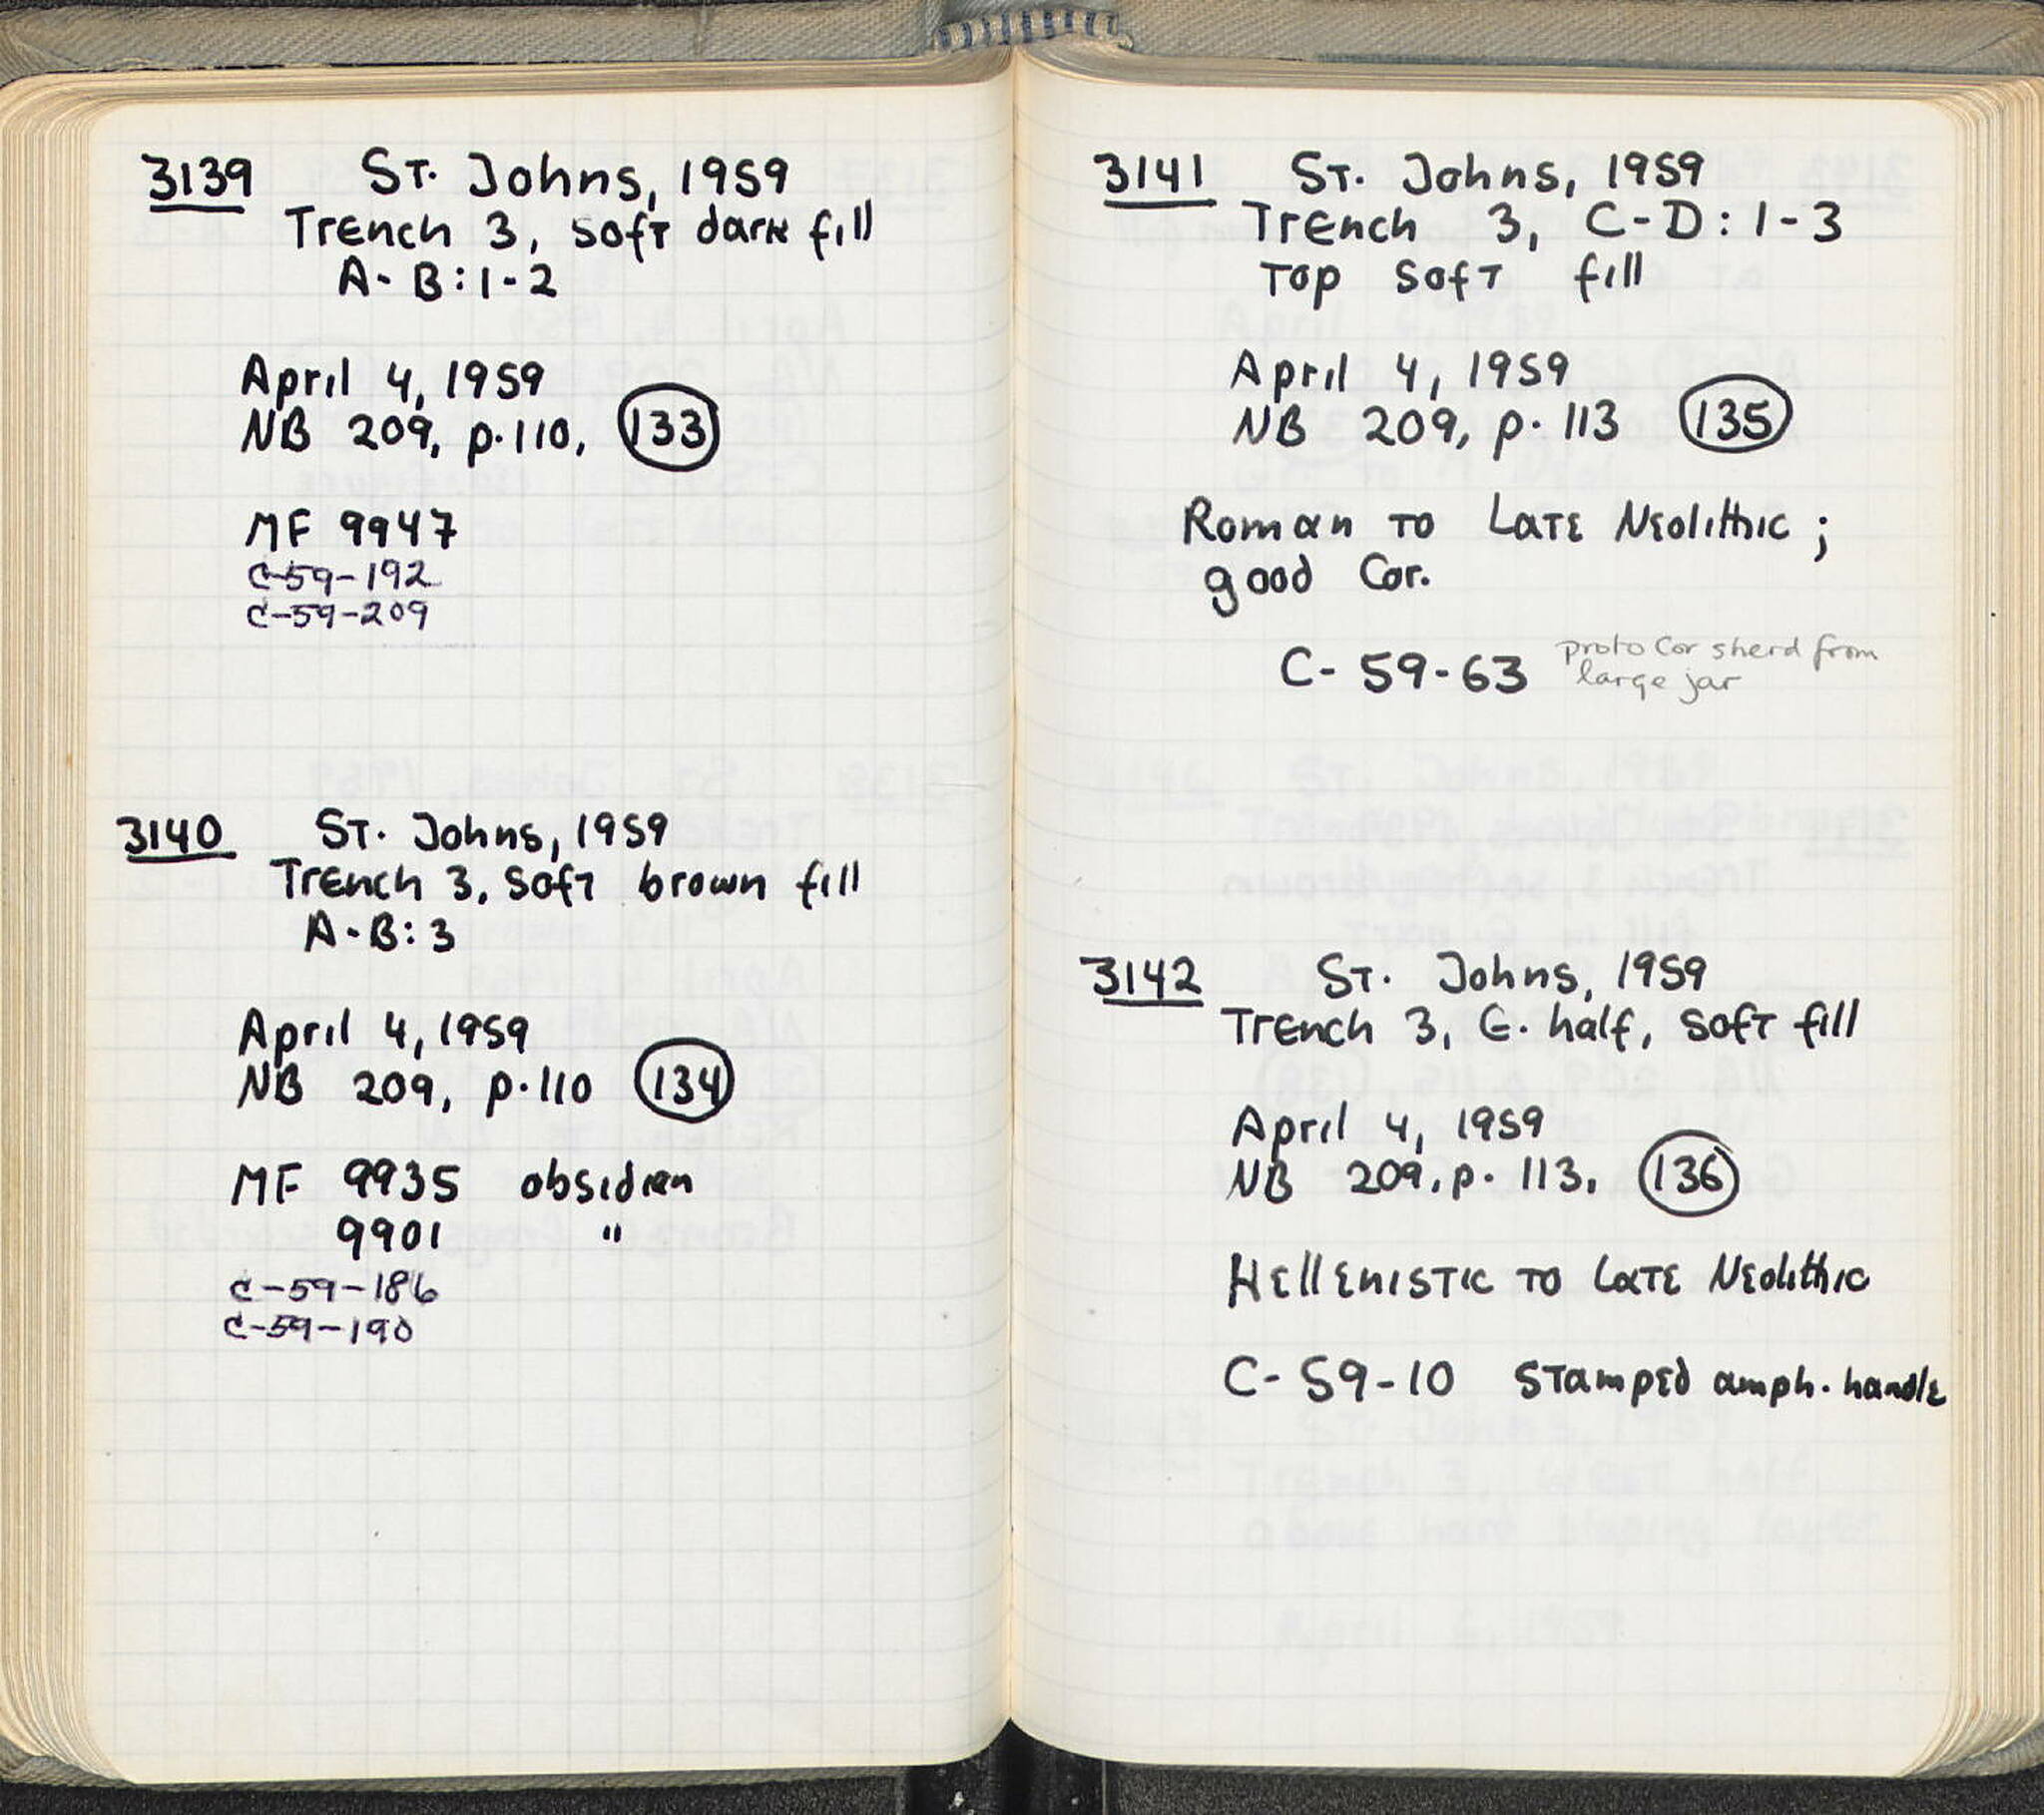 3139 St. Johns, 1959
Trench 3, soft dark fill
A-B:1-2
April 4, 1959
NB 209, p.110, 133
MF 9947
C-59-192
C-59-209
3140 St. Johns, 1959
Trench 3, soft brown fill
A-B:3
April 4, 1959
NB 209, p.110 134
MF 9935 obsidian
9901 "
C-59-186
C-59-190
3141 St. Johns, 1959
Trench 3, C-D:1-3
Top soft fill
April 4, 1959
NB 209, p. 113 135
Roman to Late Neolithic;
good Cor.
C-59-63 proto Cor sherd from
large jar
3142 St. Johns, 1959
Trench 3, E. half, soft fill
April 4, 1959
NB 209, p. 113, 136
Hellenistic to Late Neolithic
C-59-10 stamped amph. handle